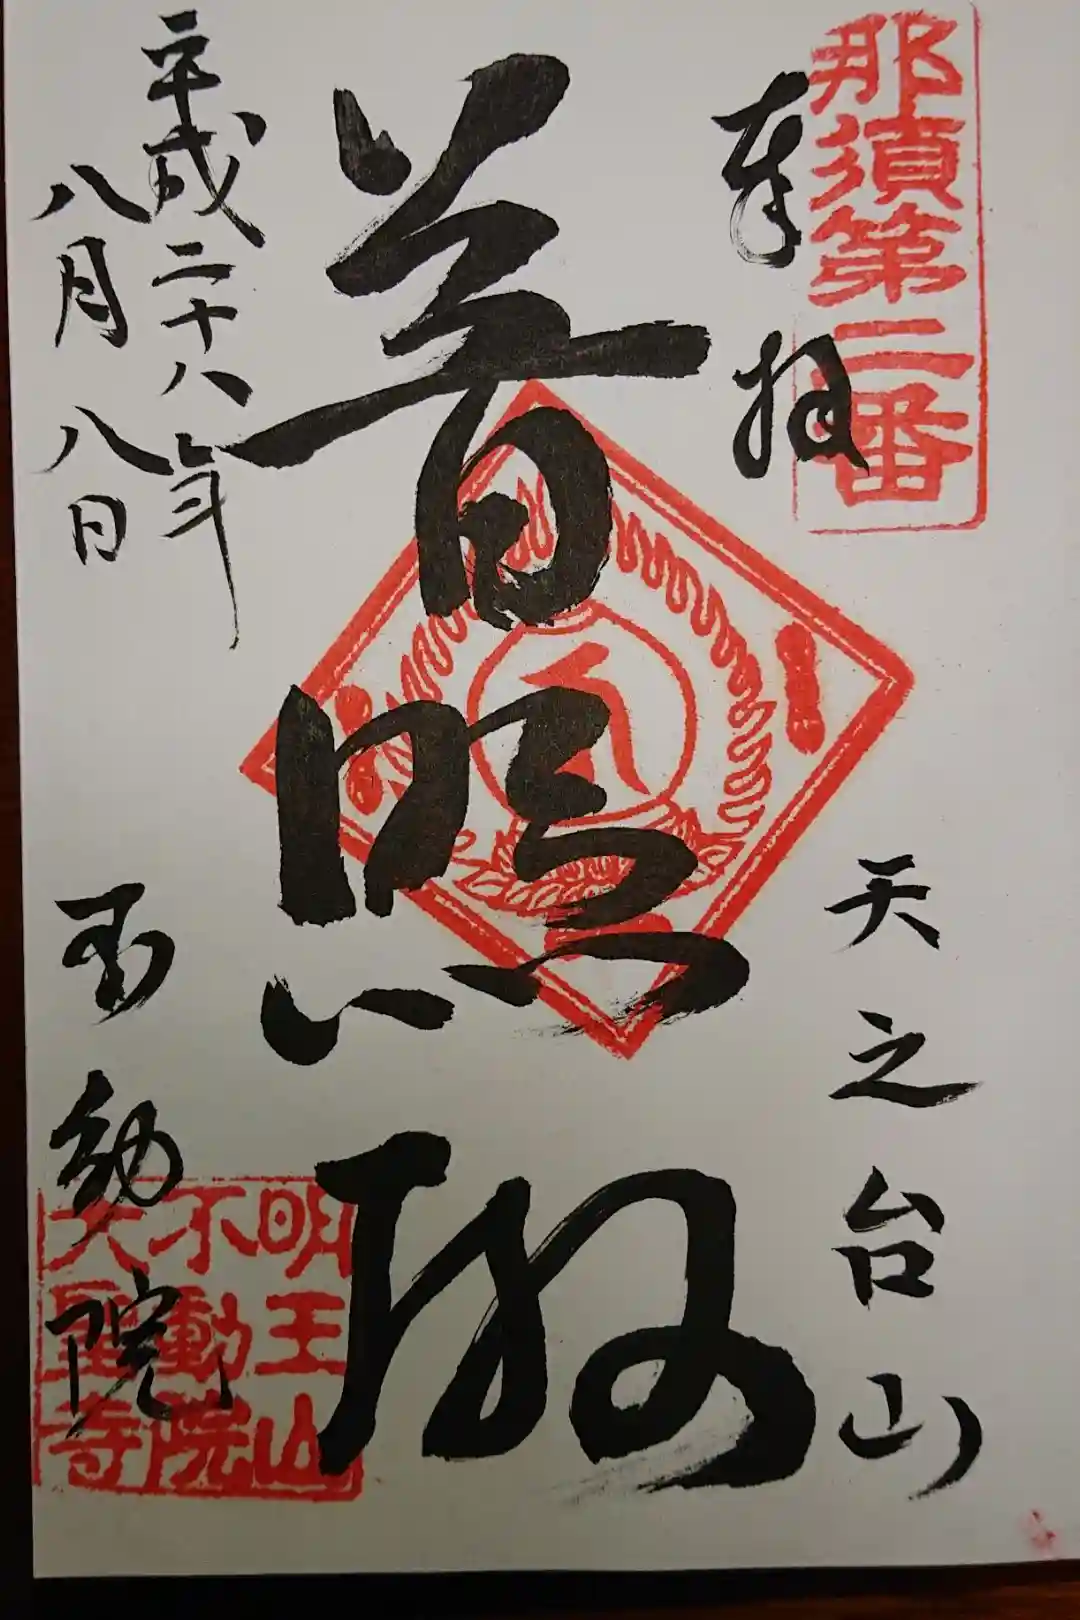 那須第二番
奉拝
天之台山
普照殿
平成二十八年
八月八日
不動院
明王山
不動院
大聖寺